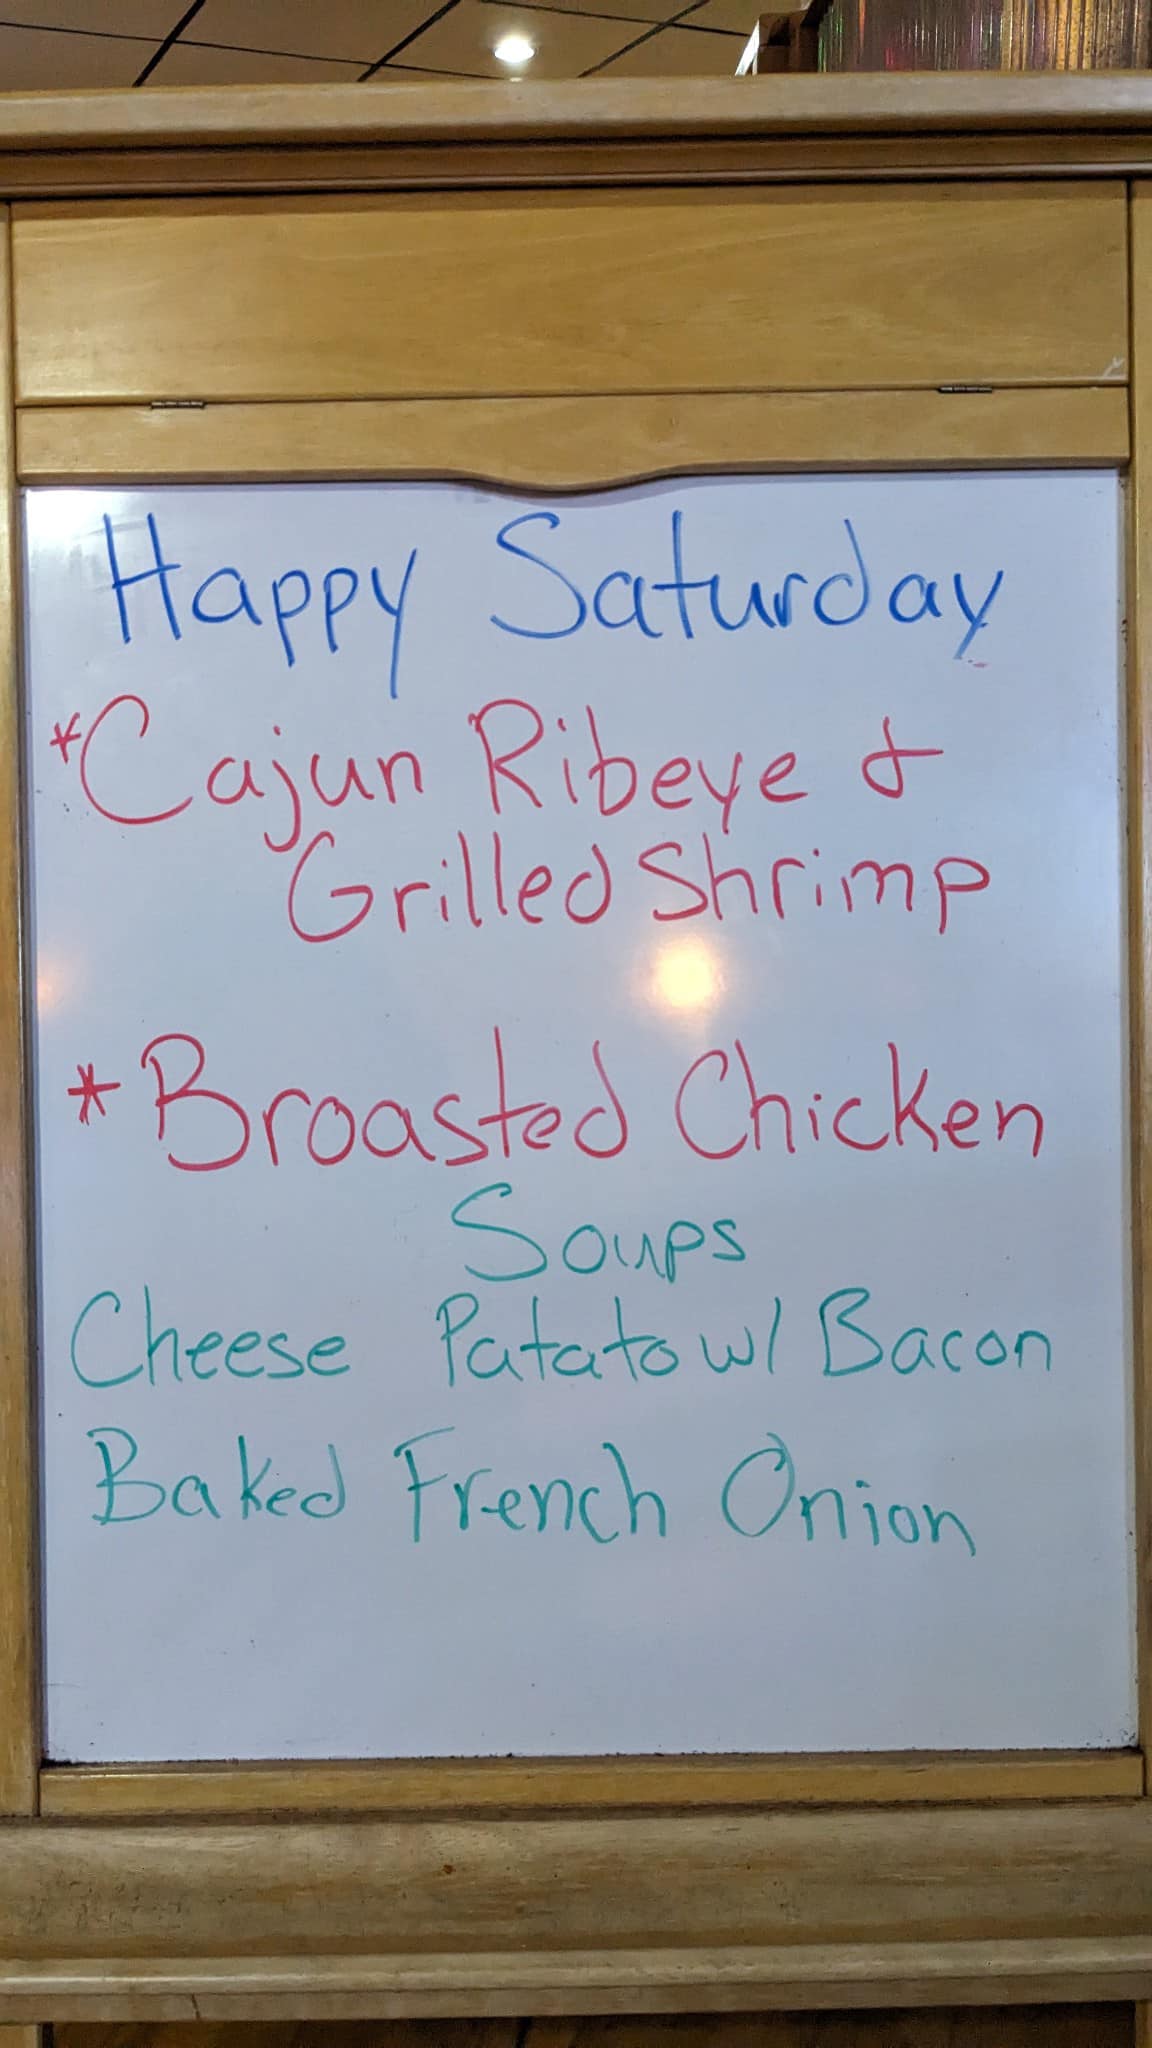 Happy Saturday
*Cajun Ribeye &
Grilled Shrimp
*Broasted Chicken
Soups
Cheese Patato w/ Bacon
Baked French Onion